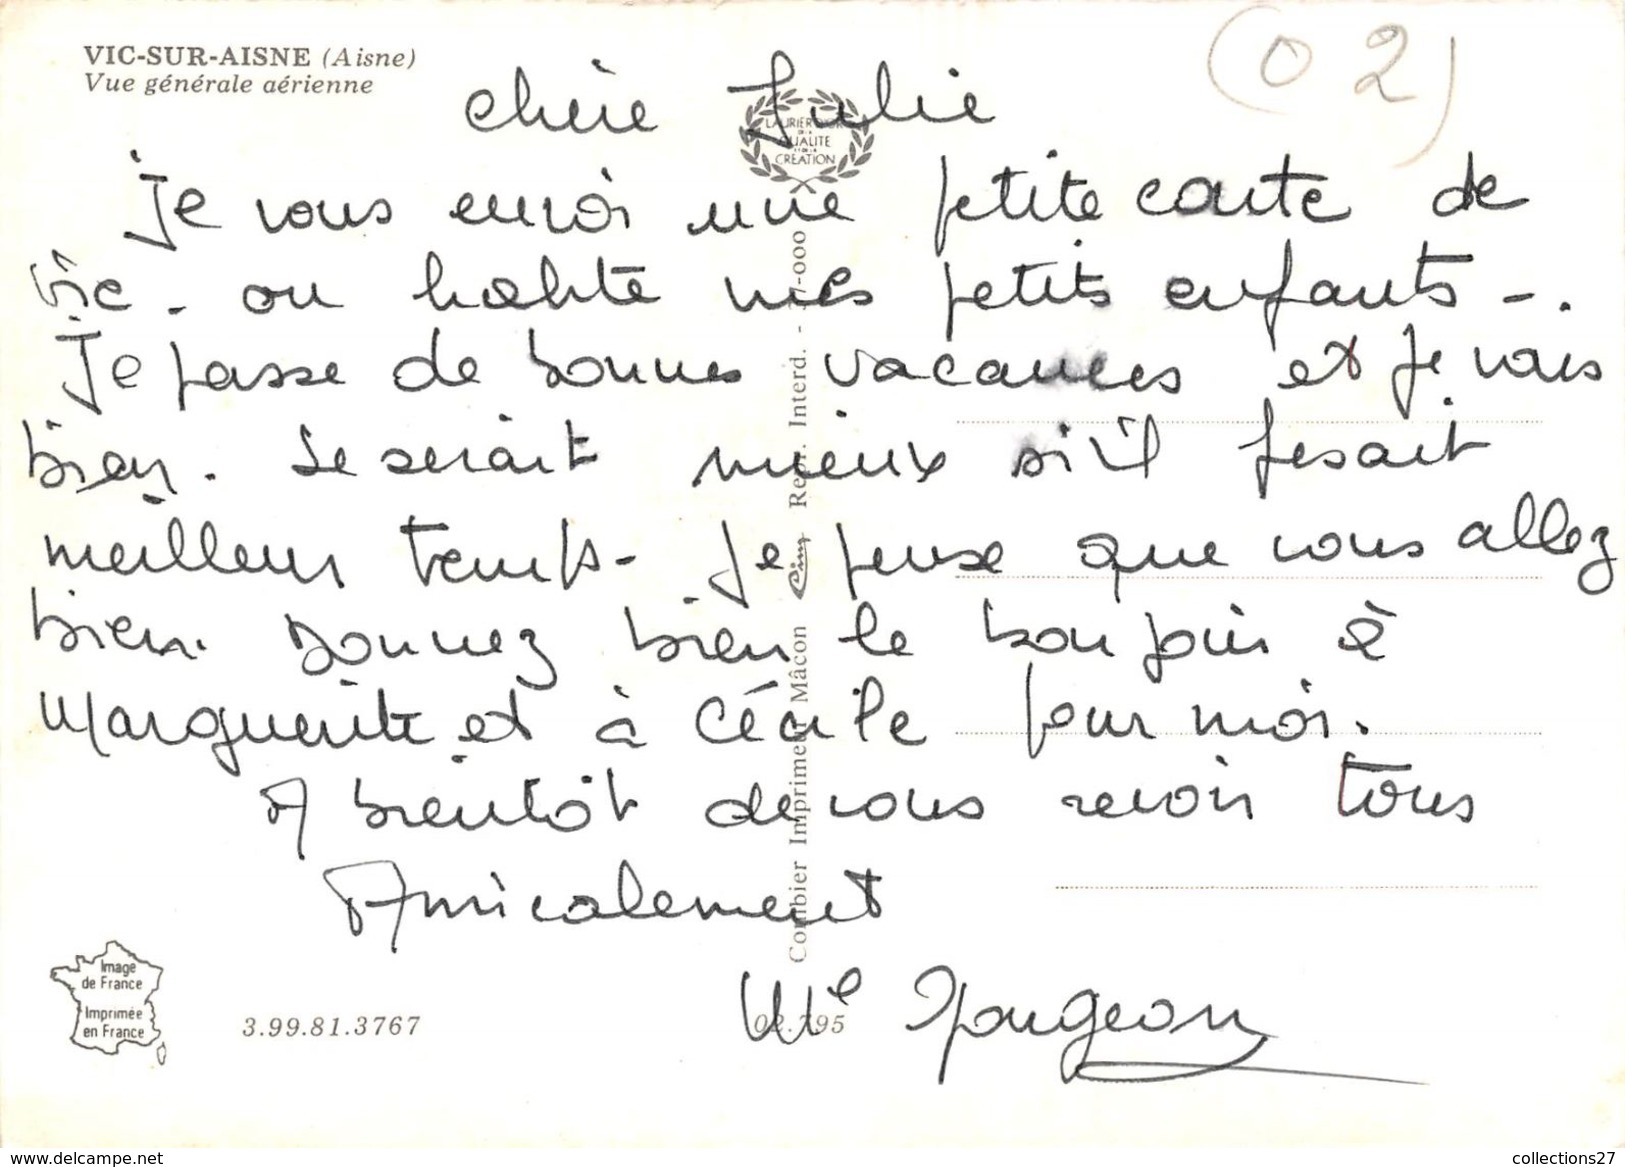 VIC-SUR-AISNE (Aisne)
Vue générale aérienne
(02)
LAURIER D'OR
DE LA
QUALITE
ET DE LA
CREATION
chère Julie
Je vous envoi une petite carte de
Vic - ou habite mes petits enfants -.
Je passe de bonnes vacances et je vais
bien. Se serait mieux si il fesait
meilleur temps - Je pense que vous allez
bien. Donnez bien le bonjour à
Marguerite et à Cécile pour moi.
A bientôt de vous revoir tous
Amicalement
Combier Imprimeur Mâcon Cim Repr. Interd. - 37-000
Image
de France
Imprimée
en France
3.99.81.3767
02.795
collections27